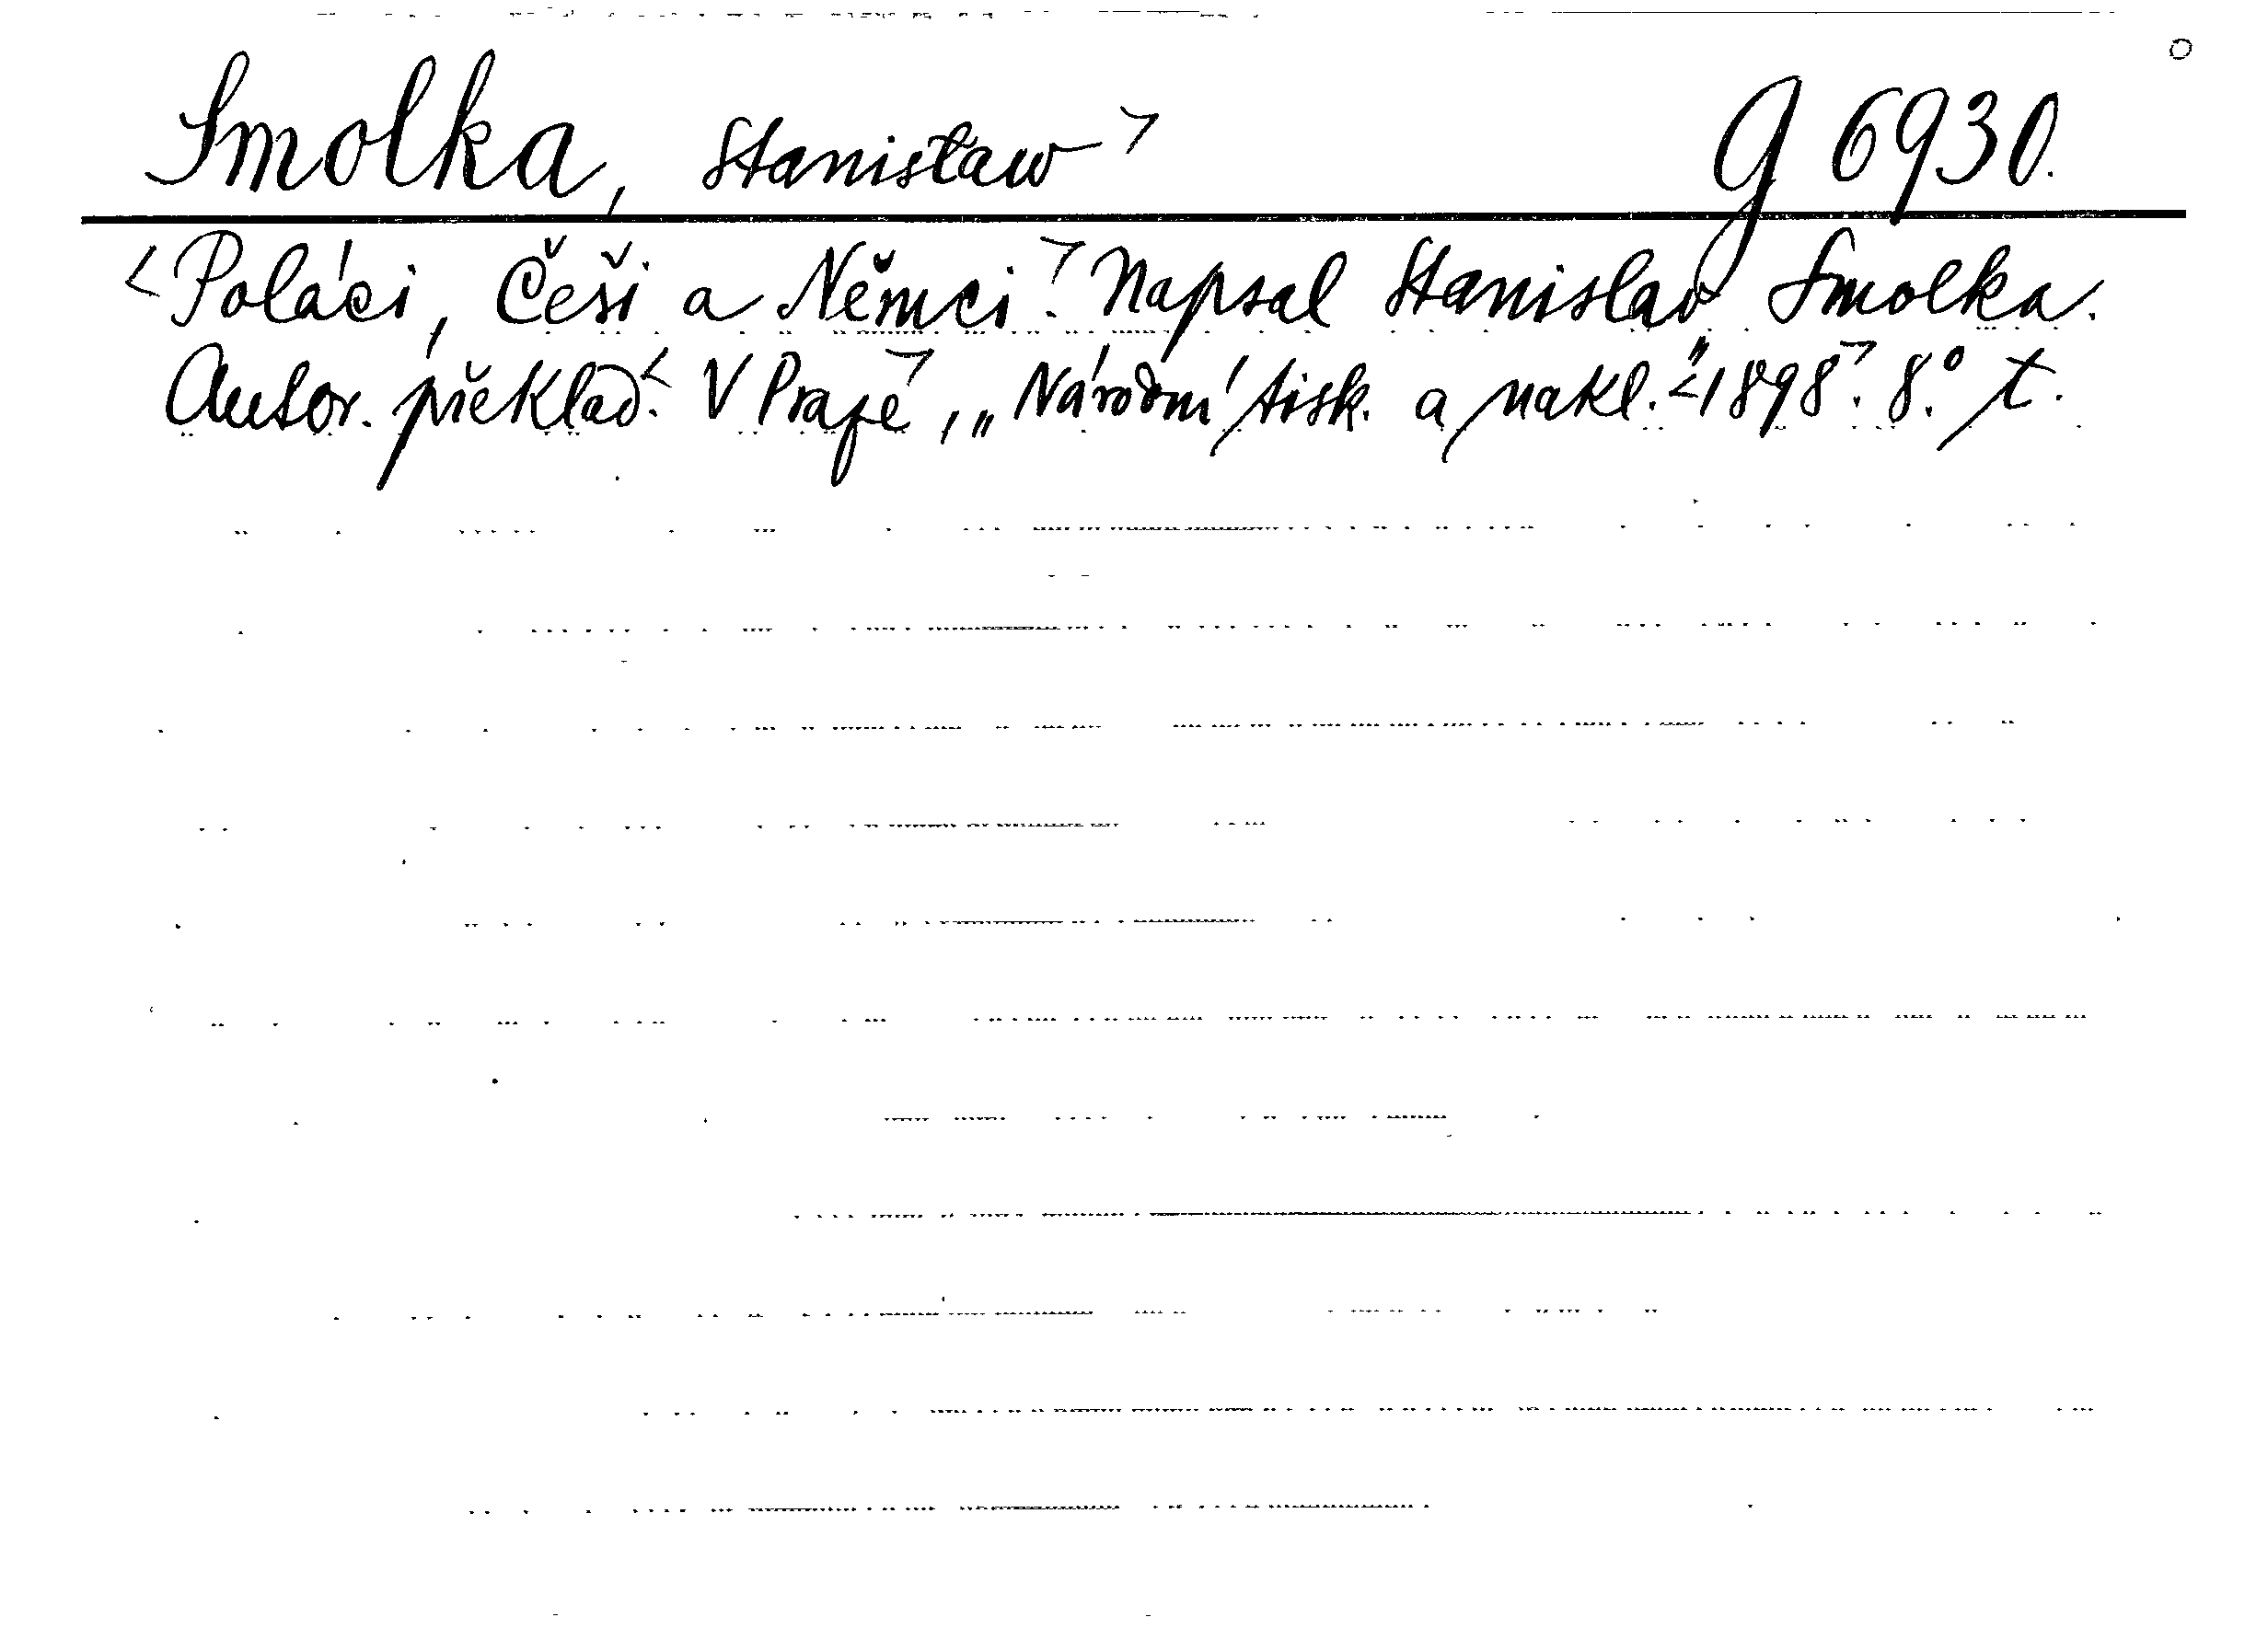 Smolka, Stanisław> G 6930.
<Poláci, Češi a Němci.> Napsal Stanislav Smolka.
Autor. překlad.< V Praze>, „Národní tisk. a nakl.“ <1898>. 8.° t.